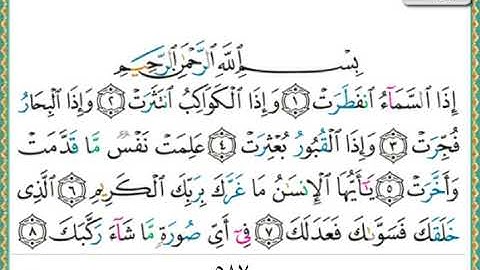 بِسْمِ ٱللَّهِ ٱلرَّحْمَٰنِ ٱلرَّحِيمِ
إِذَا ٱلسَّمَآءُ ٱنفَطَرَتْ ١ وَإِذَا ٱلْكَوَاكِبُ ٱنتَثَرَتْ ٢ وَإِذَا ٱلْبِحَارُ
فُجِّرَتْ ٣ وَإِذَا ٱلْقُبُورُ بُعْثِرَتْ ٤ عَلِمَتْ نَفْسٌ مَّا قَدَّمَتْ
وَأَخَّرَتْ ٥ يَٰٓأَيُّهَا ٱلْإِنسَٰنُ مَا غَرَّكَ بِرَبِّكَ ٱلْكَرِيمِ ٦ ٱلَّذِى
خَلَقَكَ فَسَوَّىٰكَ فَعَدَلَكَ ٧ فِىٓ أَىِّ صُورَةٍ مَّا شَآءَ رَكَّبَكَ ٨
٥٨٧